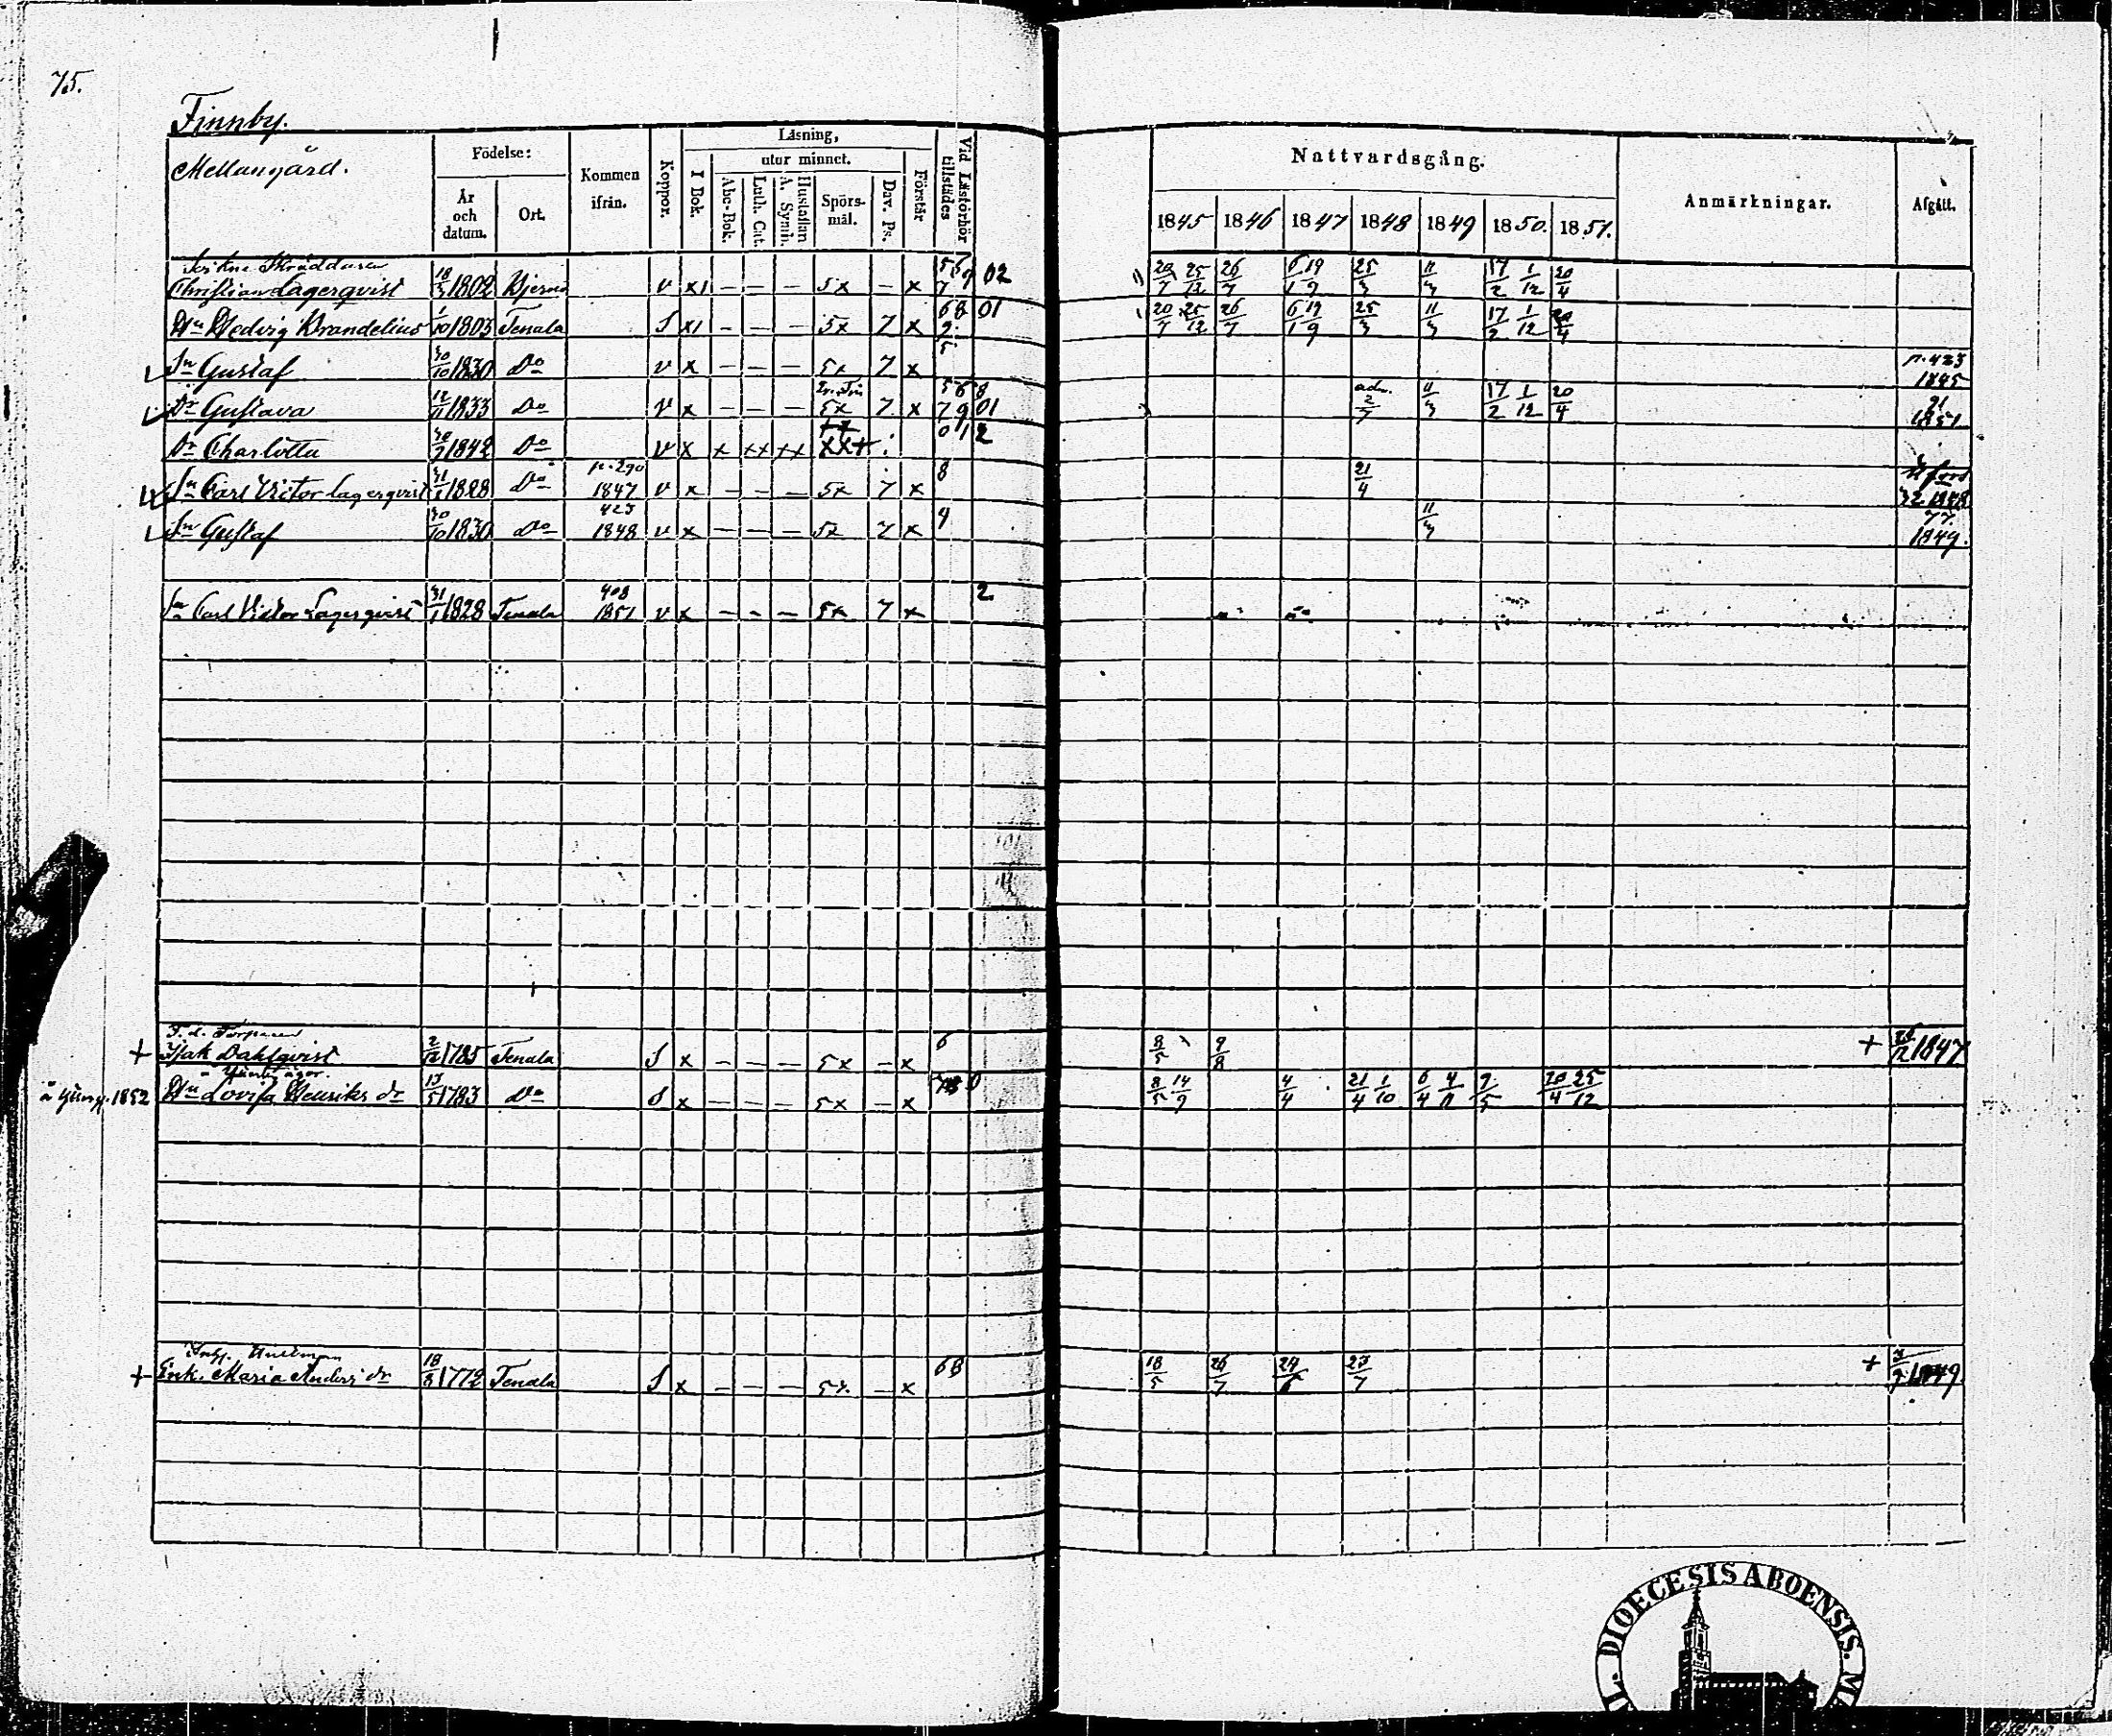 75.
Finnby.
Mellangård.
Födelse:
År och datum.
Ort.
Kommen ifrån.
Koppor.
Läsning,
I Bok.
utur minnet.
Abc-Bok.
Luth. Cat.
Hustaflan A. Symb.
Spörsmål.
Dav. Ps.
Förstår
Vid Läsförhör tillstädes
Nattvardsgång.
1845 1846 1847 1848 1849 1850. 1851.
Anmärkningar.
Afgått.
Skräddaren
Christian Lagerqvist 18/3 1802 Kjerno v x1 — — — 5x — x 02 20/7 25/12 26/7 6/1 19/9 25/3 11/3 17/2 1/12 20/4
Hu Hedvig Brandelius 1/10 1803 Tenala S x1 — — — 5x 7 x 68 01 20/7 25/12 26/7 6/1 19/9 25/3 11/3 17/2 1/12 20/4
Sn Gustaf 30/10 1830 Do v x — — — 5x 7 x 5 p. 423 1845
Dr Gustava 12/11 1833 Do v x — — — 5x 7 x 568 79 01 adm. 2/7 11/3 17/2 1/12 20/4 1851
Dr Charlotta 30/7 1842 Do v x x xx xx xxx 01 2
Sn Carl Victor Lagerqvist 31/1 1828 Do p. 290 1847 v x — — — 5x 7 x 8 21/4 32 1848
Sn Gustaf 30/10 1830 Do 423 1848 v x — — — 5x 7 x 4 11/3 77. 1849.
Sn Carl Victor Lagerqvist 31/1 1828 Tenala 408 1851 v x — — — 5x 7 x 2
F. d. Torparen
+ Isak Dahlqvist 2/12 1785 Tenala S x — — — 5x — x 6 8/5 9/8 + 25/12 1847
1852 Hu Lovisa Henriks dr 15/5 1783 Do S x — — — 5x — x 8/5 14/9 4/4 21/4 1/10 6/4 4/11 9/5 20/4 25/12
Inhs.
+ Enk. Maria Anders dr 18/8 1772 Tenala S x — — — 5x — x 68 18/5 26/7 24/6 23/7 + 1849.
DIOECESIS ABOENSIS. M.